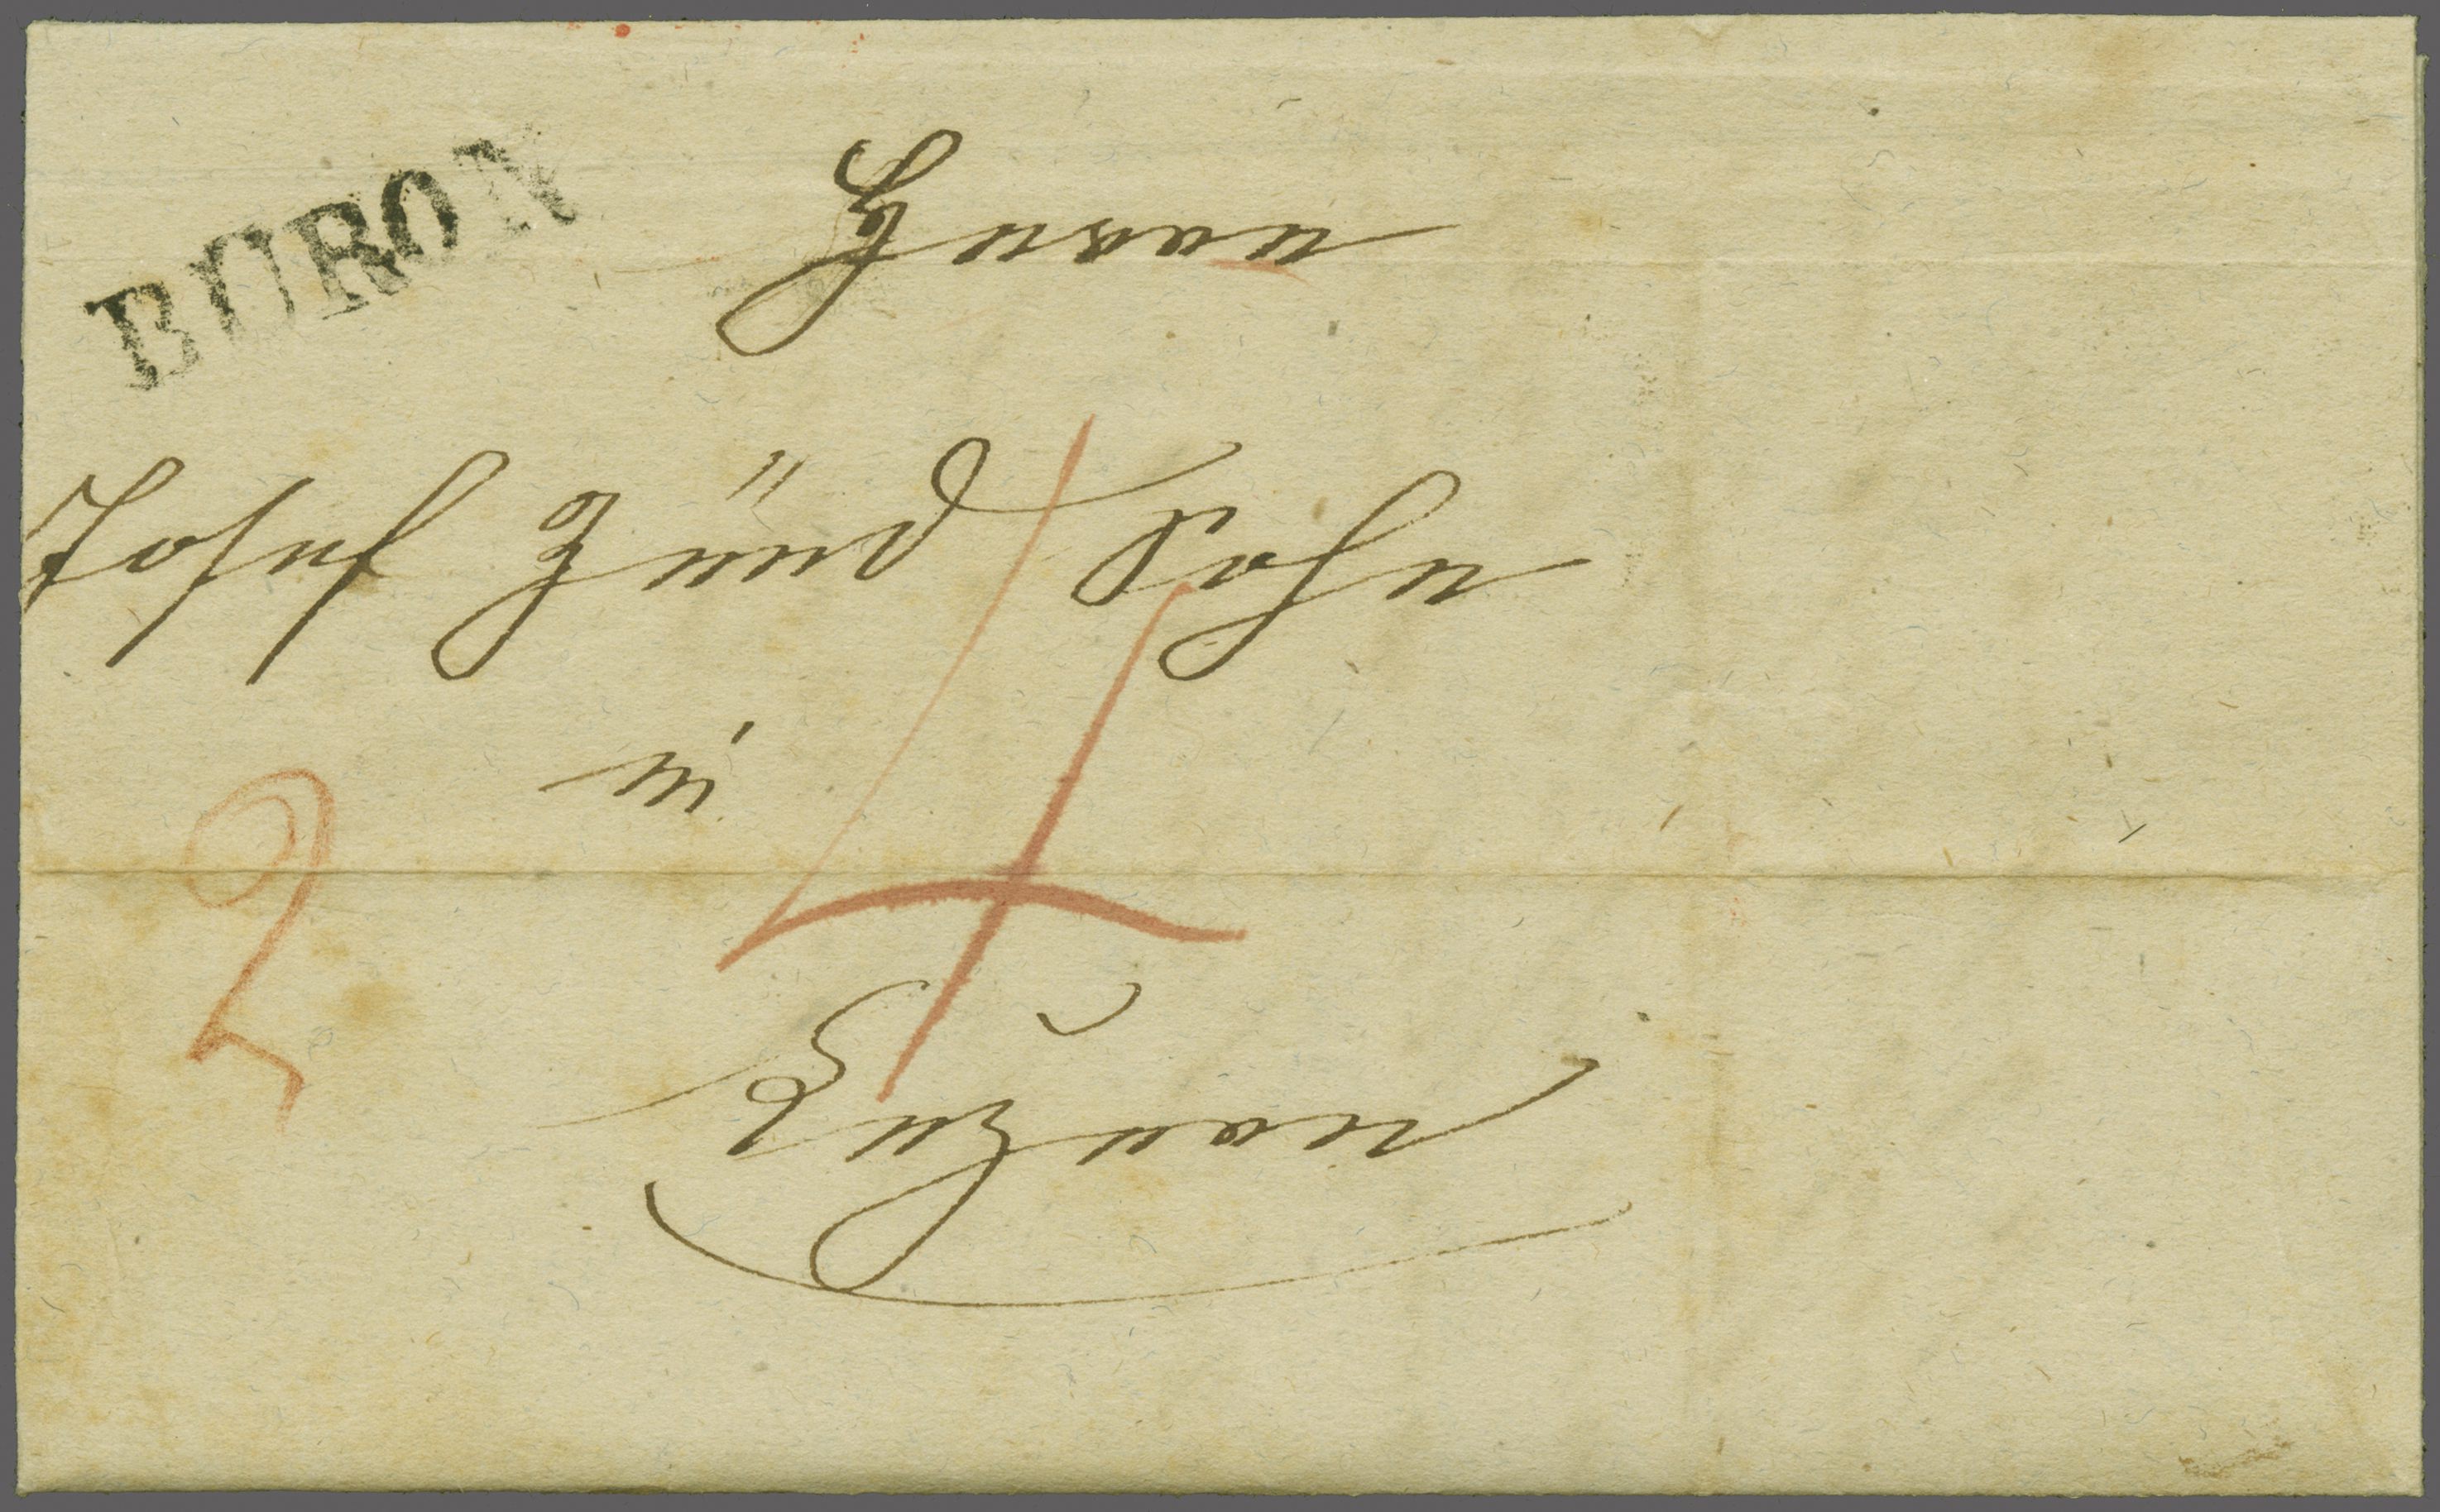 BURON
Herren
Josef Zünd Sohn
in
Luzern
4
2